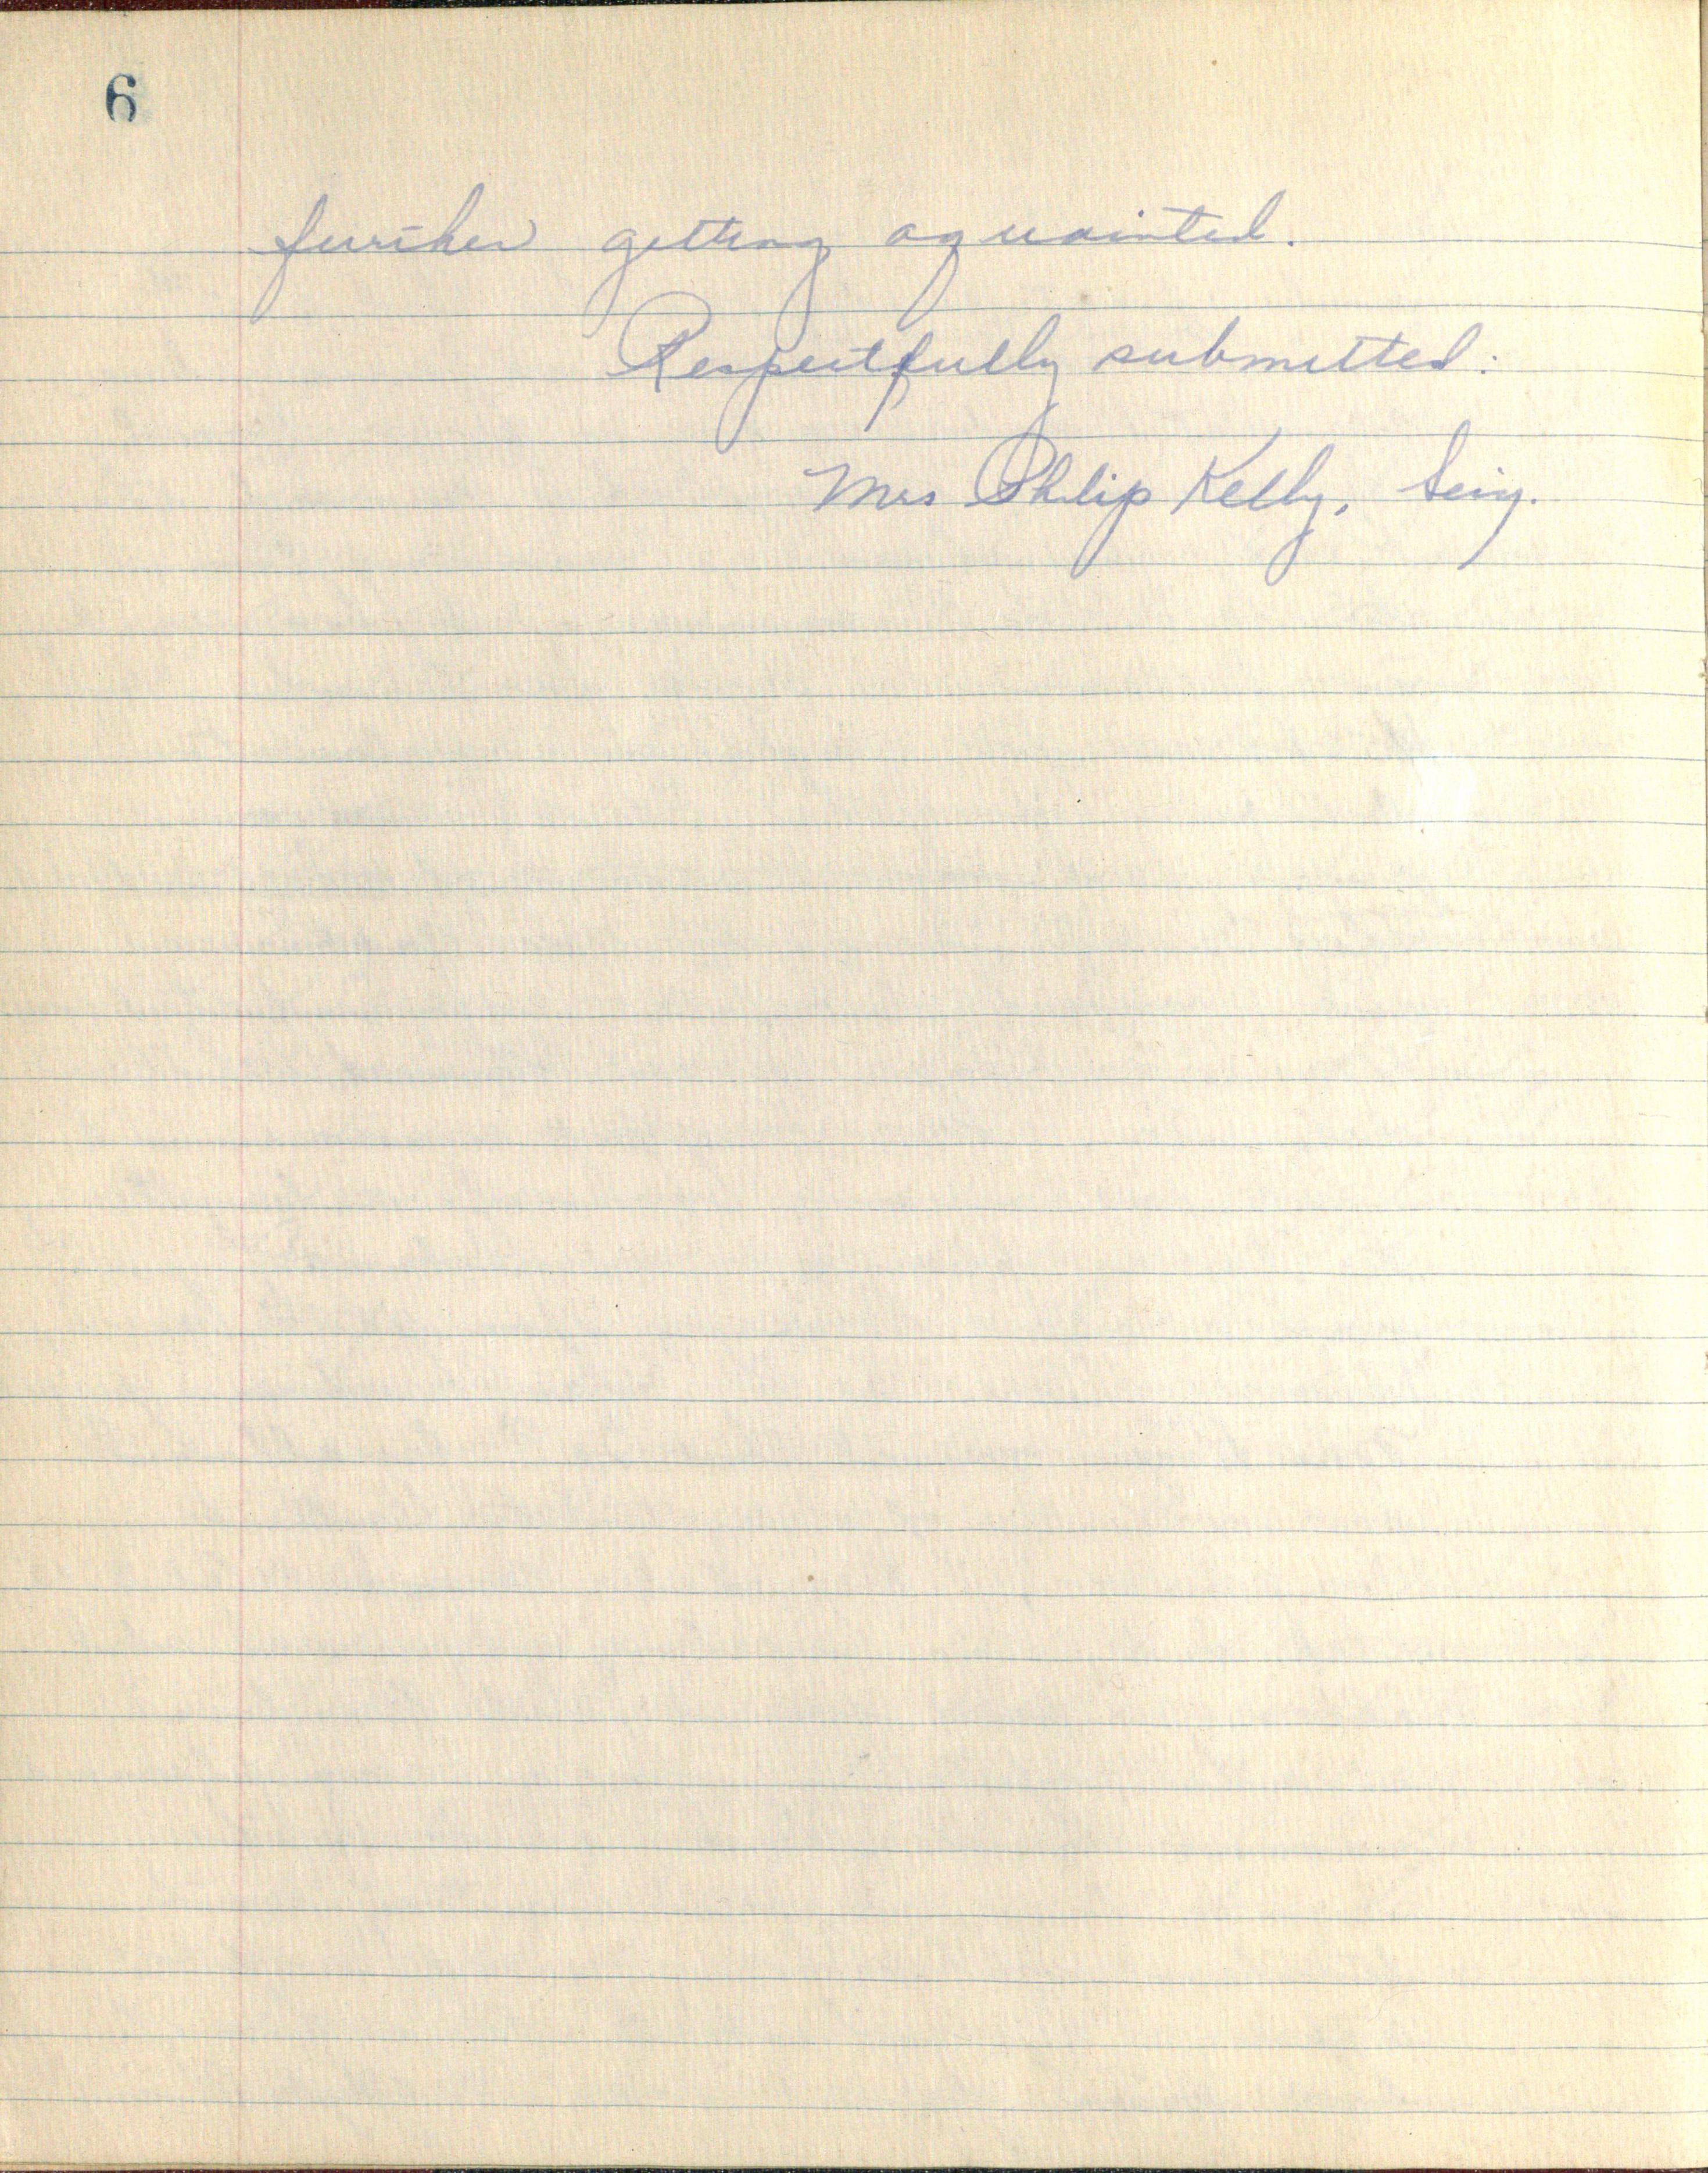 6
further getting aquainted.
Respectfully submitted:
Mrs Philip Kelly, Secy.